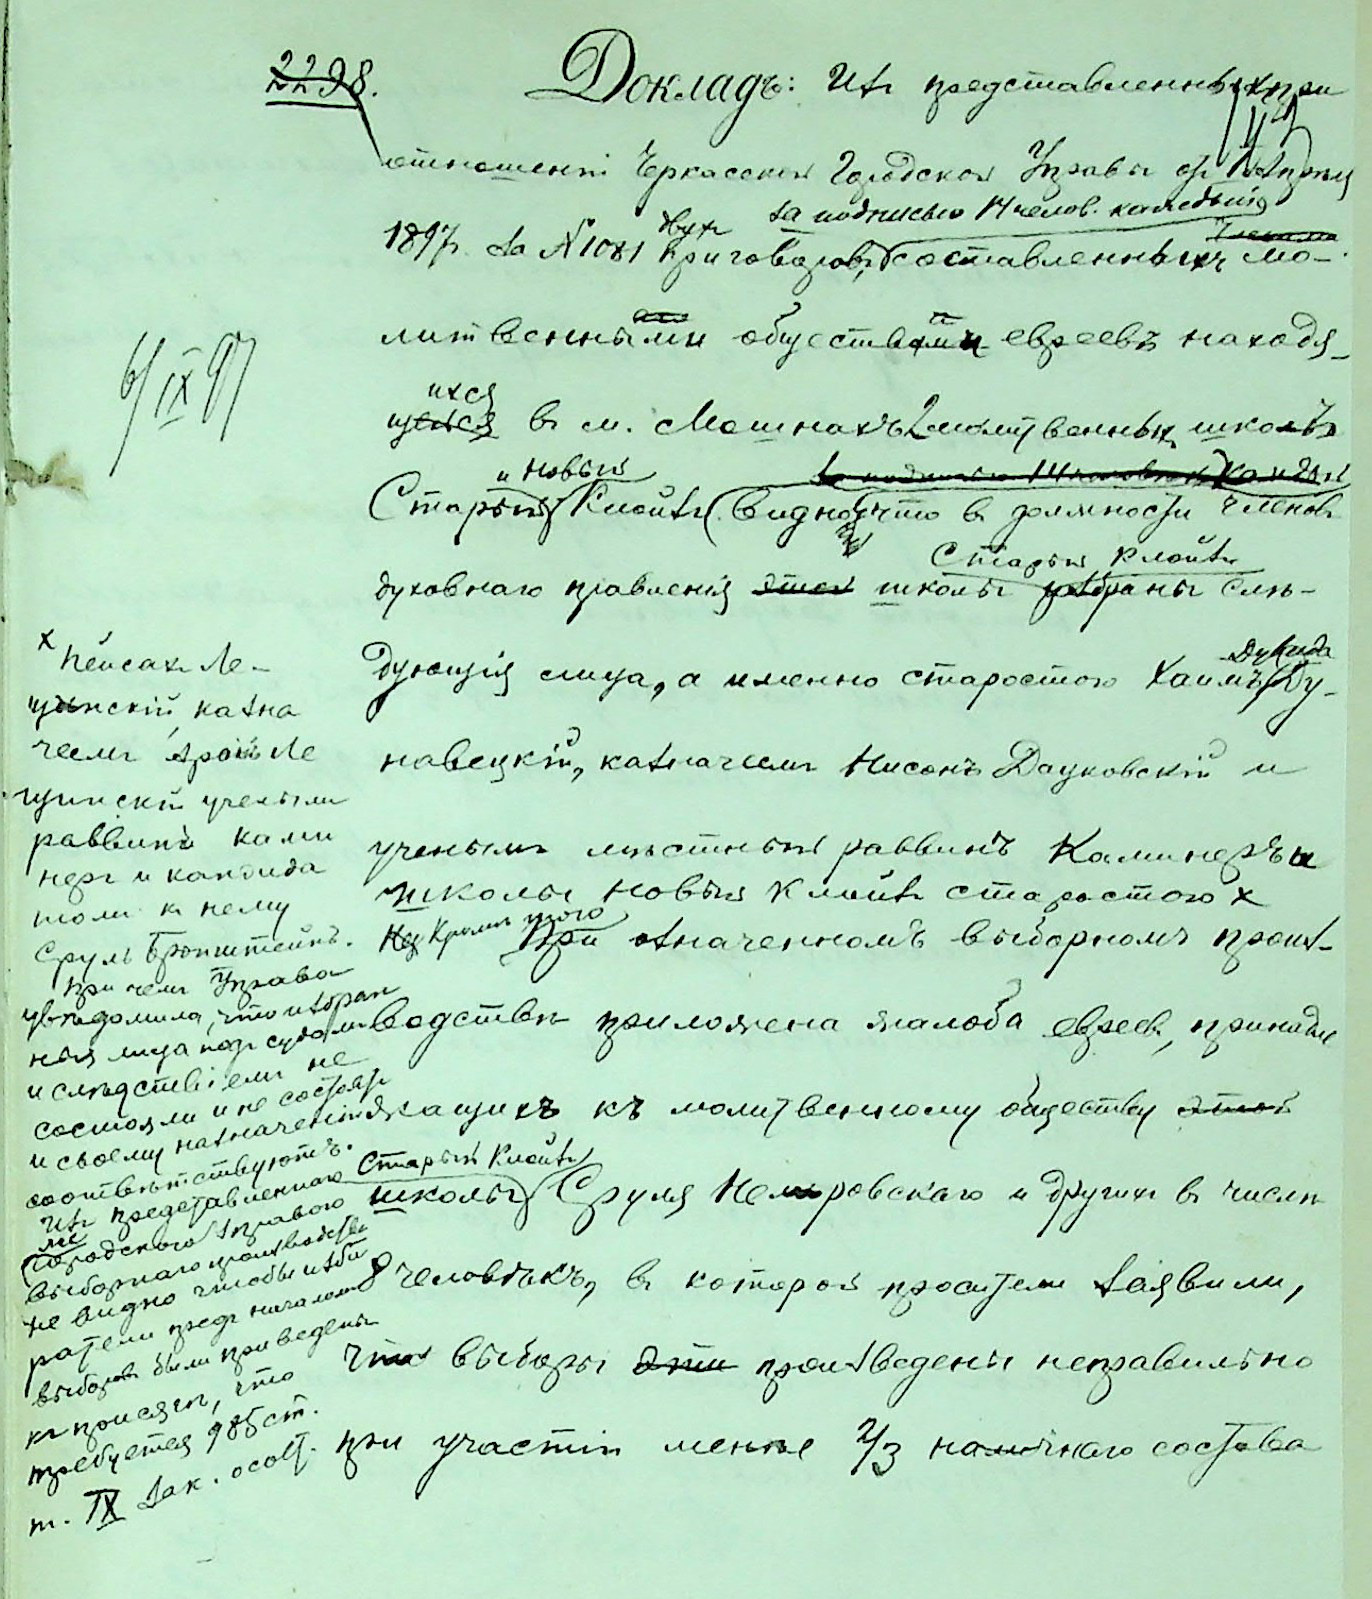 2298.
Докладъ: Изъ представленныхъ при
отношеніи Черкасской Городской Управы отъ Апрѣля
за подписью 14 челов. каждый
двухъ
1897 г. за № 1081 приговоровъ, составленныхъ мо-
литвенными обществами евреевъ находя-
щихся
въ м. Мошнахъ 2 молитвенныхъ школъ
6/IX 97
и Новый
за подписью 14 человѣкъ каждый
Старый Клойзъ видно, что въ должности членовъ
Старый Клойзъ
духовнаго правленія этой школы избраны слѣ-
Дувида
дующія лица, а именно старостою Хаимъ Ду-
навецкій, казначеемъ Нисонъ Дацковскій и
ученымъ мѣстный раввинъ Каминеръ и
школы Новый Клойзъ старостою х
Кромѣ того
При означенномъ выборномъ произ-
водствѣ приложена жалоба евреевъ, принадле
жащихъ къ молитвенному обществу этой
Старый Клойзъ
школы Сруля Немировскаго и другихъ въ числѣ
8 человѣкъ, въ которой просители заявили,
что выборы эти произведены неправильно
при участіи менѣе 2/3 наличнаго состава
х Пейсахъ Ле-
щинскій, казна
чеемъ Аронъ Ле
щинскій ученымъ
раввинъ Ками
неръ и кандида
томъ къ нему
Сруль Бронштейнъ.
При чемъ Управа
увѣдомила, что избран
ныя лица подъ судомъ
и слѣдствіемъ не
состояли и не состоятъ
и своему назначенію
соотвѣтствуютъ.
Изъ представленнаго
Городскою Управою
выборнаго производства
не видно чтобы изби
ратели предъ началомъ
выборовъ были приведены
къ присягѣ, что
требуется 985 ст.
т. IX Зак. о сост.